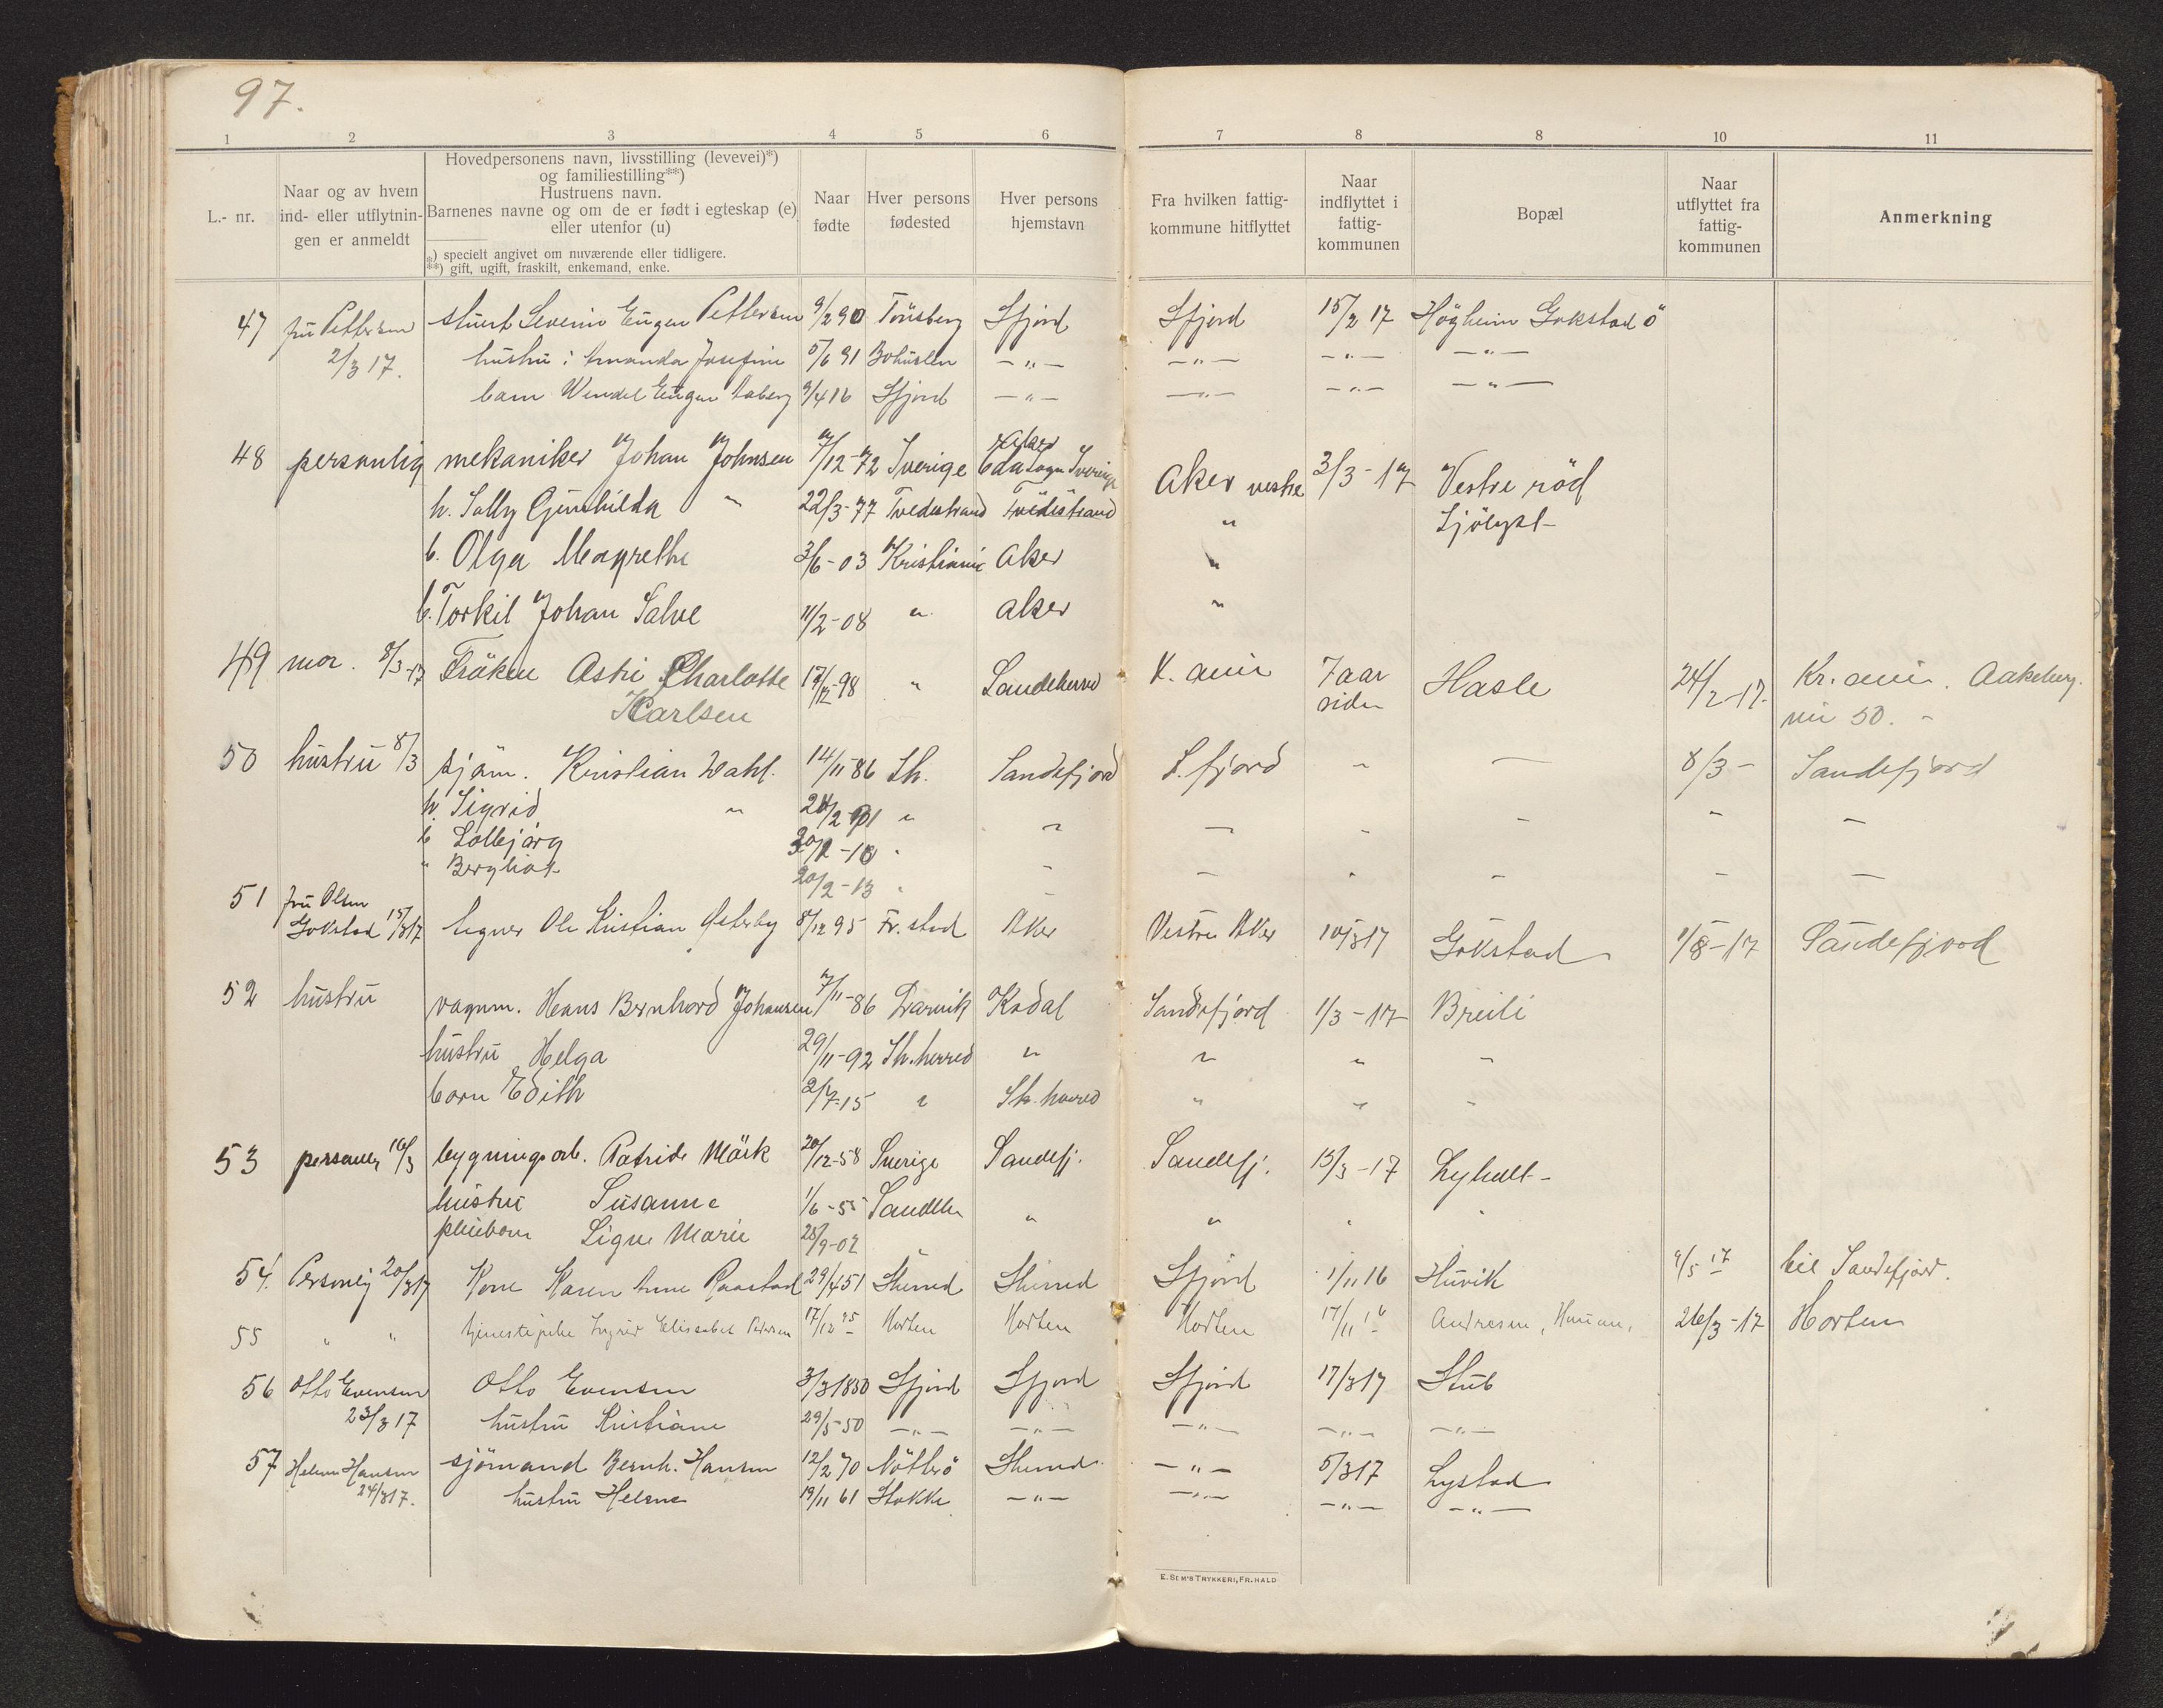 97.
1 2 3 4 5 6 7 8 8 10 11
L.- nr.
Naar og av hvem
ind- eller utflytnin-
gen er anmeldt
Hovedpersonens navn, livsstilling (levevei)*)
og familiestilling**)
Hustruens navn.
Barnenes navne og om de er født i egteskap (e)
eller utenfor (u)
*) specielt angivet om nuværende eller tidligere.
**) gift, ugift, fraskilt, enkemand, enke.
Naar
fødte
Hver persons
fødested
Hver persons
hjemstavn
Fra hvilken fattig-
kommune hitflyttet
Naar
indflyttet i
fattig-
kommunen
Bopæl
Naar
utflyttet fra
fattig-
kommunen
Anmerkning
47 fru Pettersen stuert Severin Eugen Pettersen 9/2 90 Tönsberg Sfjord Sfjord 15/2 17 Högheim Gokstad ö
2/3 17. hustru : Amanda Josefine 5/6 91 Bohuslen -"- -"- -"- -"-
barn Wendel Eugen 9/4 16 Sfjord -"- -"- -"- -"-
48 personlig mekaniker Johan Johnsen 7/12-72 Sverige Aker Sverige Aker vestre 3/3-17 Vestre röd
h. Sally Gunhilda " 22/3-77 Tvedestrand Tvedestrand " Sjölyst
b. Olga Magrethe 3/6-03 Kristiania Aker "
b. Torkil Johan Salve 11/2-08 " Aker "
49 mor. 8/3-17 Fröken Astri Charlotte 17/12-98 " Sandeherred K.ania 7 aar Hasle 24/2-17. Kr.ania. Aakeberg.
Karlsen siden 50. -
50 hustru 8/3 sjöm. Kristian Dahl. 14/11-86 Sh. Sandefjord S.fjord - - 8/3- Sandefjord
h. Sigrid " 24/2-91 " " - - - - -
b Solbjörg -10 "
" Bergliot 20/2-13 " - - - - - - -
51 fru Olsen
Gokstad 15/3 17 tegner Ole Kristian Österby 8/12 95 Fr.stad Aker Vestre Aker 10/3 17 Gokstad 1/8-17 Sandefjord
52 hustru vognm. Hans Bernhard Johansen 7/11-86 Larvik Kodal Sandefjord 1/3-17 Breili
hustru Helga 29/11-92 Sh.herred " " " "
barn Edith 2/7-15 " Sh.herred " " "
53 16/3 bygningsarb. Märk 20/12-58 Sverige Sandefj. Sandefj. 15/3-17
hustru Susanne 1/6-55 " " " "
pleiebarn Signe Marie 28/9-02
54. Personlig 20/3 17 Kone Karen Anne Raastad 29/4 51 Sherred Sherred Sfjord 1/11 16 Huvik 9/5 17 til Sandefjord.
55 " " tjenestepike Ingrid Elisabet Pedersen 17/12 95 Horten Horten Horten 17/11 16 Andresen, 26/3-17 Horten
56 Otto Evensen Otto Evensen 3/3 1850 Sfjord Sfjord Sfjord 17/3 17 Stub
23/3 17 hustru Kristiane 29/5-50 -"- -"- -"- -"- -"-
57 Helene Hansen sjömand Bernh. Hansen 12/2 70 Nötterö Sherred -"- 5/3 17 Lystad
24/3 17. hustru Helene 19/11 61 Stokke -"- -"- -"- -"-
E. SEM'S TRYKKERI, FR.HALD